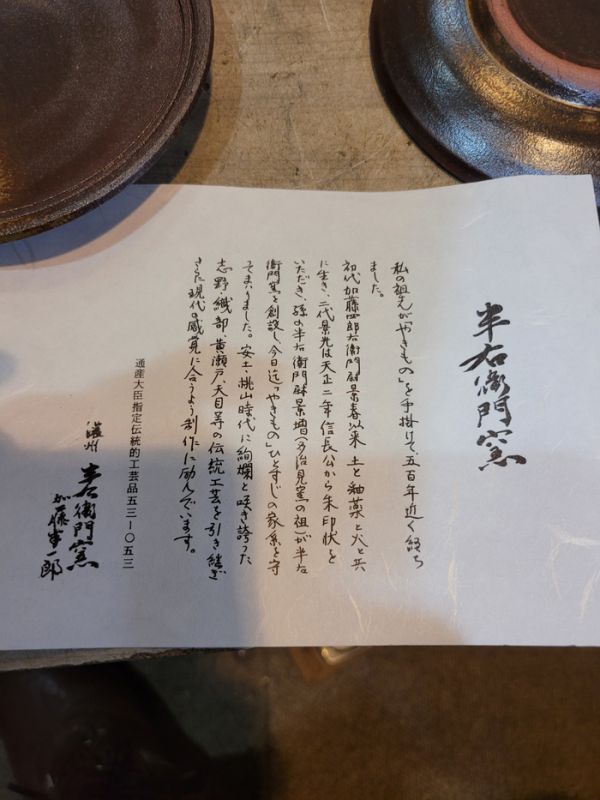 半右衛門窯
私の祖先が「やきもの」を手掛けて、五百年近く経ち
ました。
初代加藤四郎右衛門尉景春以来 土と釉薬と火と共
に生き、二代景光は天正二年信長公から朱印状を
いただき、孫の半右衛門尉景増(多治見窯の祖)が半右
衛門窯を創設し、今日迄「やきもの」ひとすじの家系を守
てまいりました。安土・桃山時代に絢爛と咲き誇った
志野、織部、黄瀬戸、天目等の伝統工芸を引き継ぎ
さらに現代の感覚に合うよう制作に励んでいます。
通産大臣指定伝統的工芸品五三一〇五三
濃州 半右衛門窯
加藤 一郎